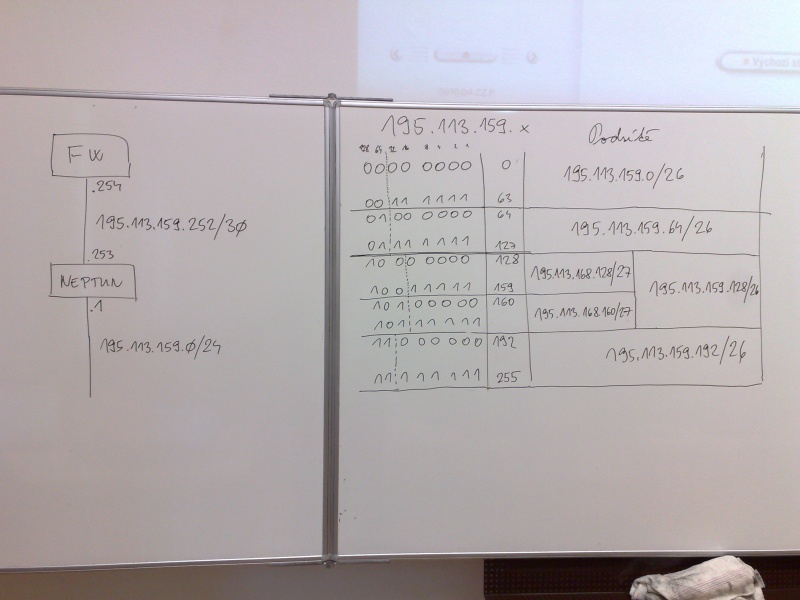 FW
.254
195.113.159.252/30
.253
NEPTUN
.1
195.113.159.0/24
195.113.159.x
Podsítě
128 64 32 16 8 4 2 1
0000 0000 0 195.113.159.0/26
0011 1111 63
0100 0000 64 195.113.159.64/26
0111 1111 127
1000 0000 128 195.113.168.128/27 195.113.159.128/26
1001 1111 159
1010 0000 160 195.113.168.160/27
1011 1111
1100 0000 192 195.113.159.192/26
1111 1111 255
Výchozí